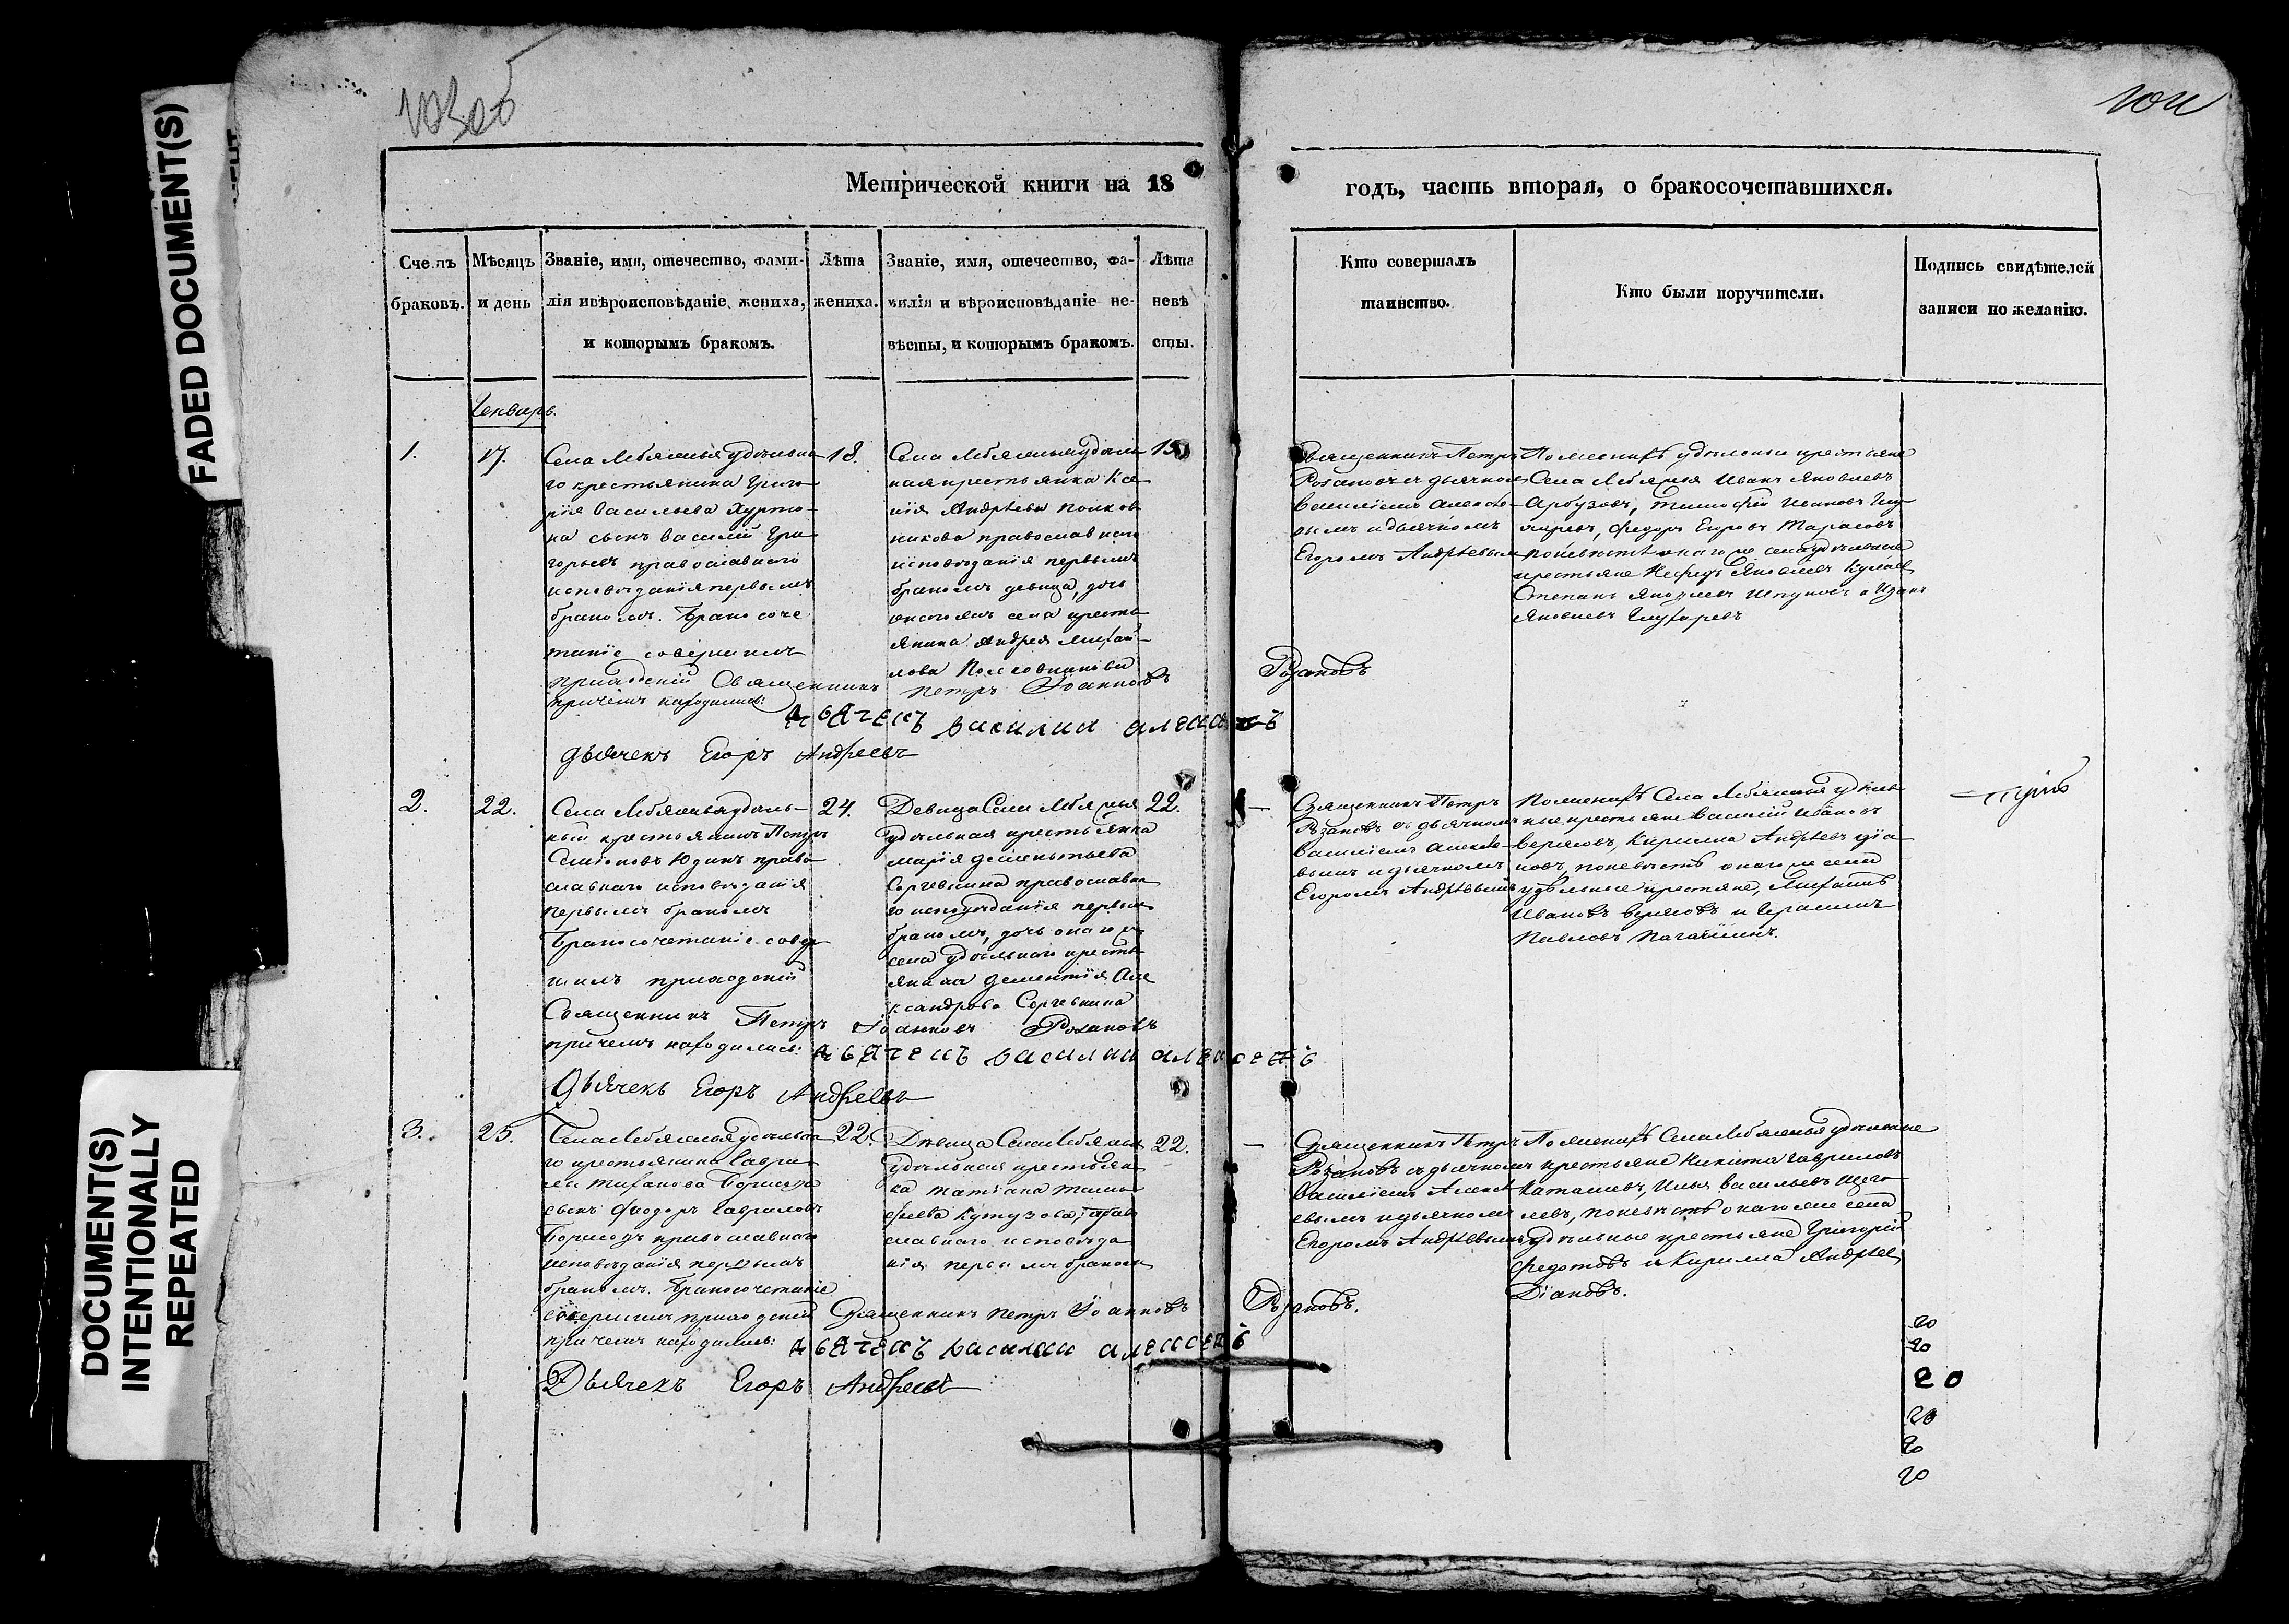 FADED DOCUMENT(S)
DOCUMENT(S)
INTENTIONALLY
REPEATED
103об
104
Метрической книги на 18
годъ, часть вторая, о бракосочетавшихся.
Счетъ
браковъ.
Мѣсяцъ
и день
Званіе, имя, отечество, фами-
лія ивѣроисповѣданіе, жениха,
и которымъ бракомъ.
Лѣта
жениха.
Званіе, имя, отечество, фа-
милія и вѣроисповѣданіе не-
вѣсты, и которымъ бракомъ.
Лѣта
невѣ
сты.
Кто совершалъ
таинство.
Кто были поручители.
Подпись свидѣтелей
записи по желанію.
Генварь.
1.
17.
Села Лебяжья удѣльна
го крестьянина Григо
рія Васильева
сынъ Василій Гри
горьевъ православнаго
исповѣданія первымъ
бракомъ. Бракосоче
таніе совершилъ
приходскій Священникъ Петръ Іоанновъ Розановъ
причемъ находились:
дьячекъ василии алексѣевъ
дьячекъ Егоръ Андреевъ
18.
Села Лебяжья удѣль
ная крестьянка Ксе
нія Андрѣева Полков
никова православнаго
исповѣданія первымъ
бракомъ девица, дочь
онагожъ села кресть
янина Андрея Михай
лова Полковникова
19
Священникъ Петръ
Розановъ съ дьячкомъ
Василіемъ Алексѣе
вымъ и дьячкомъ
Егоромъ Андрѣевымъ
По женихѣ удѣльные крестьяне
Села Лебяжья Иванъ Яковлевъ
Арбузовъ, Тимофей Ивановъ
Федоръ Егоровъ Тарасовъ
по невѣстѣ онаго же села удѣльные
крестьяне Яковлевъ
Степанъ Яковлевъ и Иванъ
Яковлевъ
2.
22.
Села Лебяжья удѣль-
ный крестьянинъ Петръ
Семеновъ Юдинъ право
славнаго исповѣданія
первымъ бракомъ
Бракосочетаніе совер
шилъ приходскій
Священникъ Петръ Іоанновъ Розановъ
причемъ находились:
дьячекъ василии алексеевъ
Дьячекъ Егоръ Андреевъ
24.
Девица Села Лебяжья
удѣльная крестьянка
Марія Дементьева
Сергевнина православна
го исповѣданія первымъ
бракомъ, дочь онаго же
села удѣльнаго кресть
янина Дементія Але
ксандрова Сергевнина
22.
Священникъ Петръ
Розановъ съ дьячкомъ
Василіемъ Алексѣе
вымъ и дьячкомъ
Егоромъ Андрѣевымъ
По женихѣ Села Лебяжья удѣль
ные крестьяне Василій Ивановъ
Кирилла Андрѣевъ Діа
новъ, по невѣстѣ онаго же села
удѣльные крестяне, Михаилъ
Ивановъ и Герасимъ
Павловъ
3.
25.
Села Лебяжья удѣльна
го крестьянина Гаври
лы Борисова
сынъ Феодоръ Гавриловъ
Борисовъ православнаго
исповѣданія первымъ
бракомъ. Бракосочетаніе
совершилъ приходскій Священникъ Петръ Іоанновъ Розановъ.
причемъ находились:
дьячекъ василии алексеевъ
Дьячекъ Егоръ Андреевъ
22.
Дѣвица Села Лебяжья
удѣльная крестьян
ка Татіана Тимо
феева Кутузова, право
славнаго исповѣда
нія первымъ бракомъ
22.
Священникъ Петръ
Розановъ съ дьячкомъ
Василіемъ Алексѣ
евымъ и дьячкомъ
Егоромъ Андрѣевымъ
По женихѣ Села Лебяжья удѣльные
крестьяне Никита Гавриловъ
Илья Васильевъ Щего
левъ, по невѣстѣ онаго же села
удѣльные крестьяне Григорій
Федотовъ и Кирилла Андрѣевъ
Діановъ.
20
20
20
20
20
20